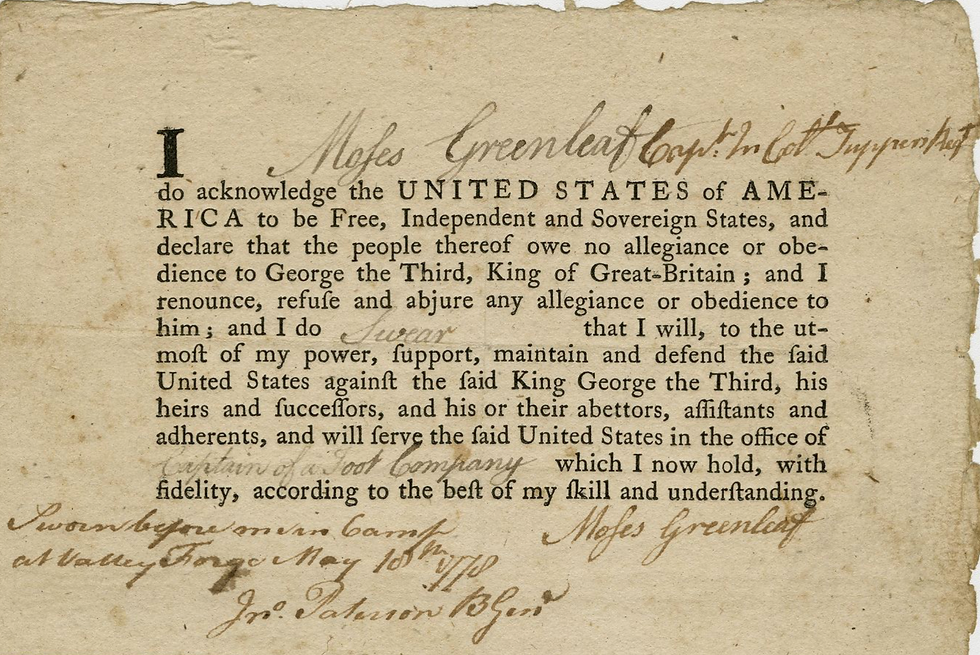 I Moſes Greenleaf Capt. In Coll. Tuppers Regt
do acknowledge the UNITED STATES of AME-
RICA to be Free, Independent and Sovereign States, and
declare that the people thereof owe no allegiance or obe-
dience to George the Third, King of Great-Britain ; and I
renounce, refuſe and abjure any allegiance or obedience to
him ; and I do Swear that I will, to the ut-
moſt of my power, ſupport, maintain and defend the ſaid
United States againſt the ſaid King George the Third, his
heirs and ſucceſſors, and his or their abettors, aſſiſtants and
adherents, and will ſerve the ſaid United States in the office of
Captain of a Foot Company which I now hold, with
fidelity, according to the beſt of my ſkill and underſtanding.
Moſes Greenleaf
Sworn before me in Camp
at Valley Forge May 18th 1778
Jno. Paterson B Genl